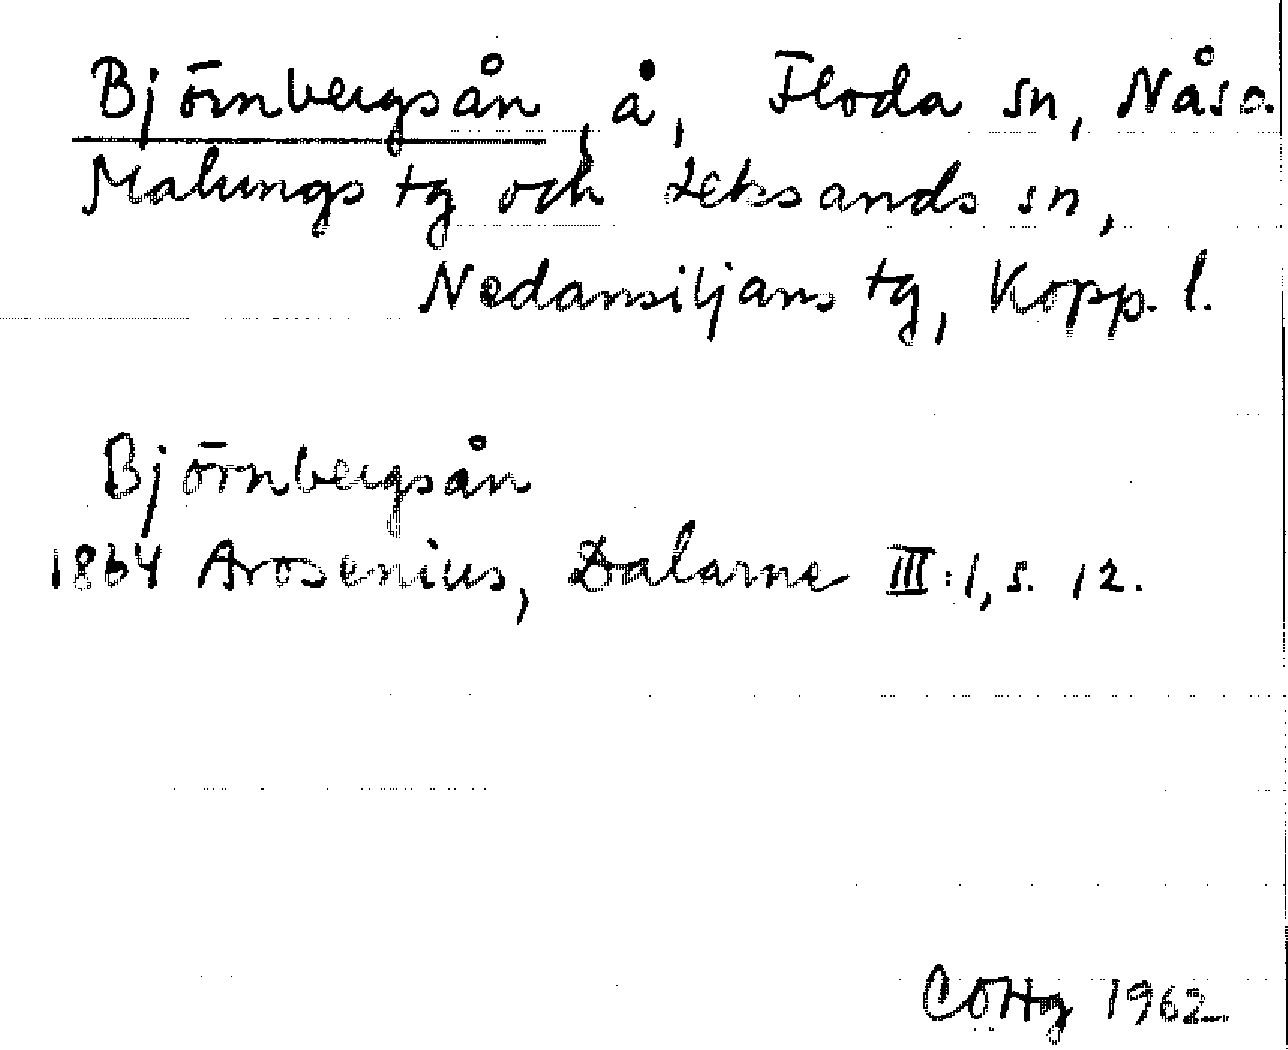 Björnbergsån, å, Floda sn, Nås o.
Malungs tg och Leksands sn,
Nedansiljans tg, Kopp. l.
Björnbergsån
1864 Arosenius, Dalarne III:1, s. 12.
COHg 1962